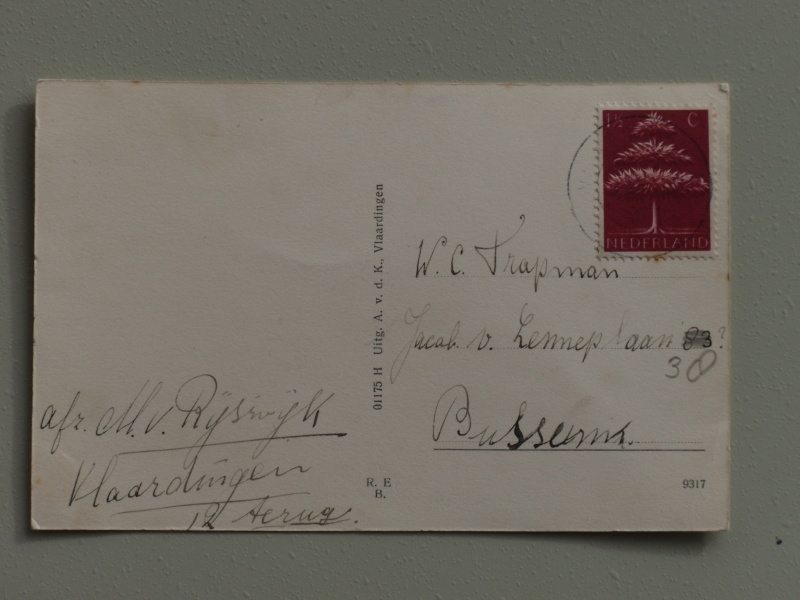 1½ C
NEDERLAND
W. C. Trapman
Jacob. v. Lenneplaan 83?
38
Bussum.
afz. M. v. Rijswijk
Vlaardingen
12 terug.
01175 H Uitg. A. v. d. K., Vlaardingen
R. E
B.
9317